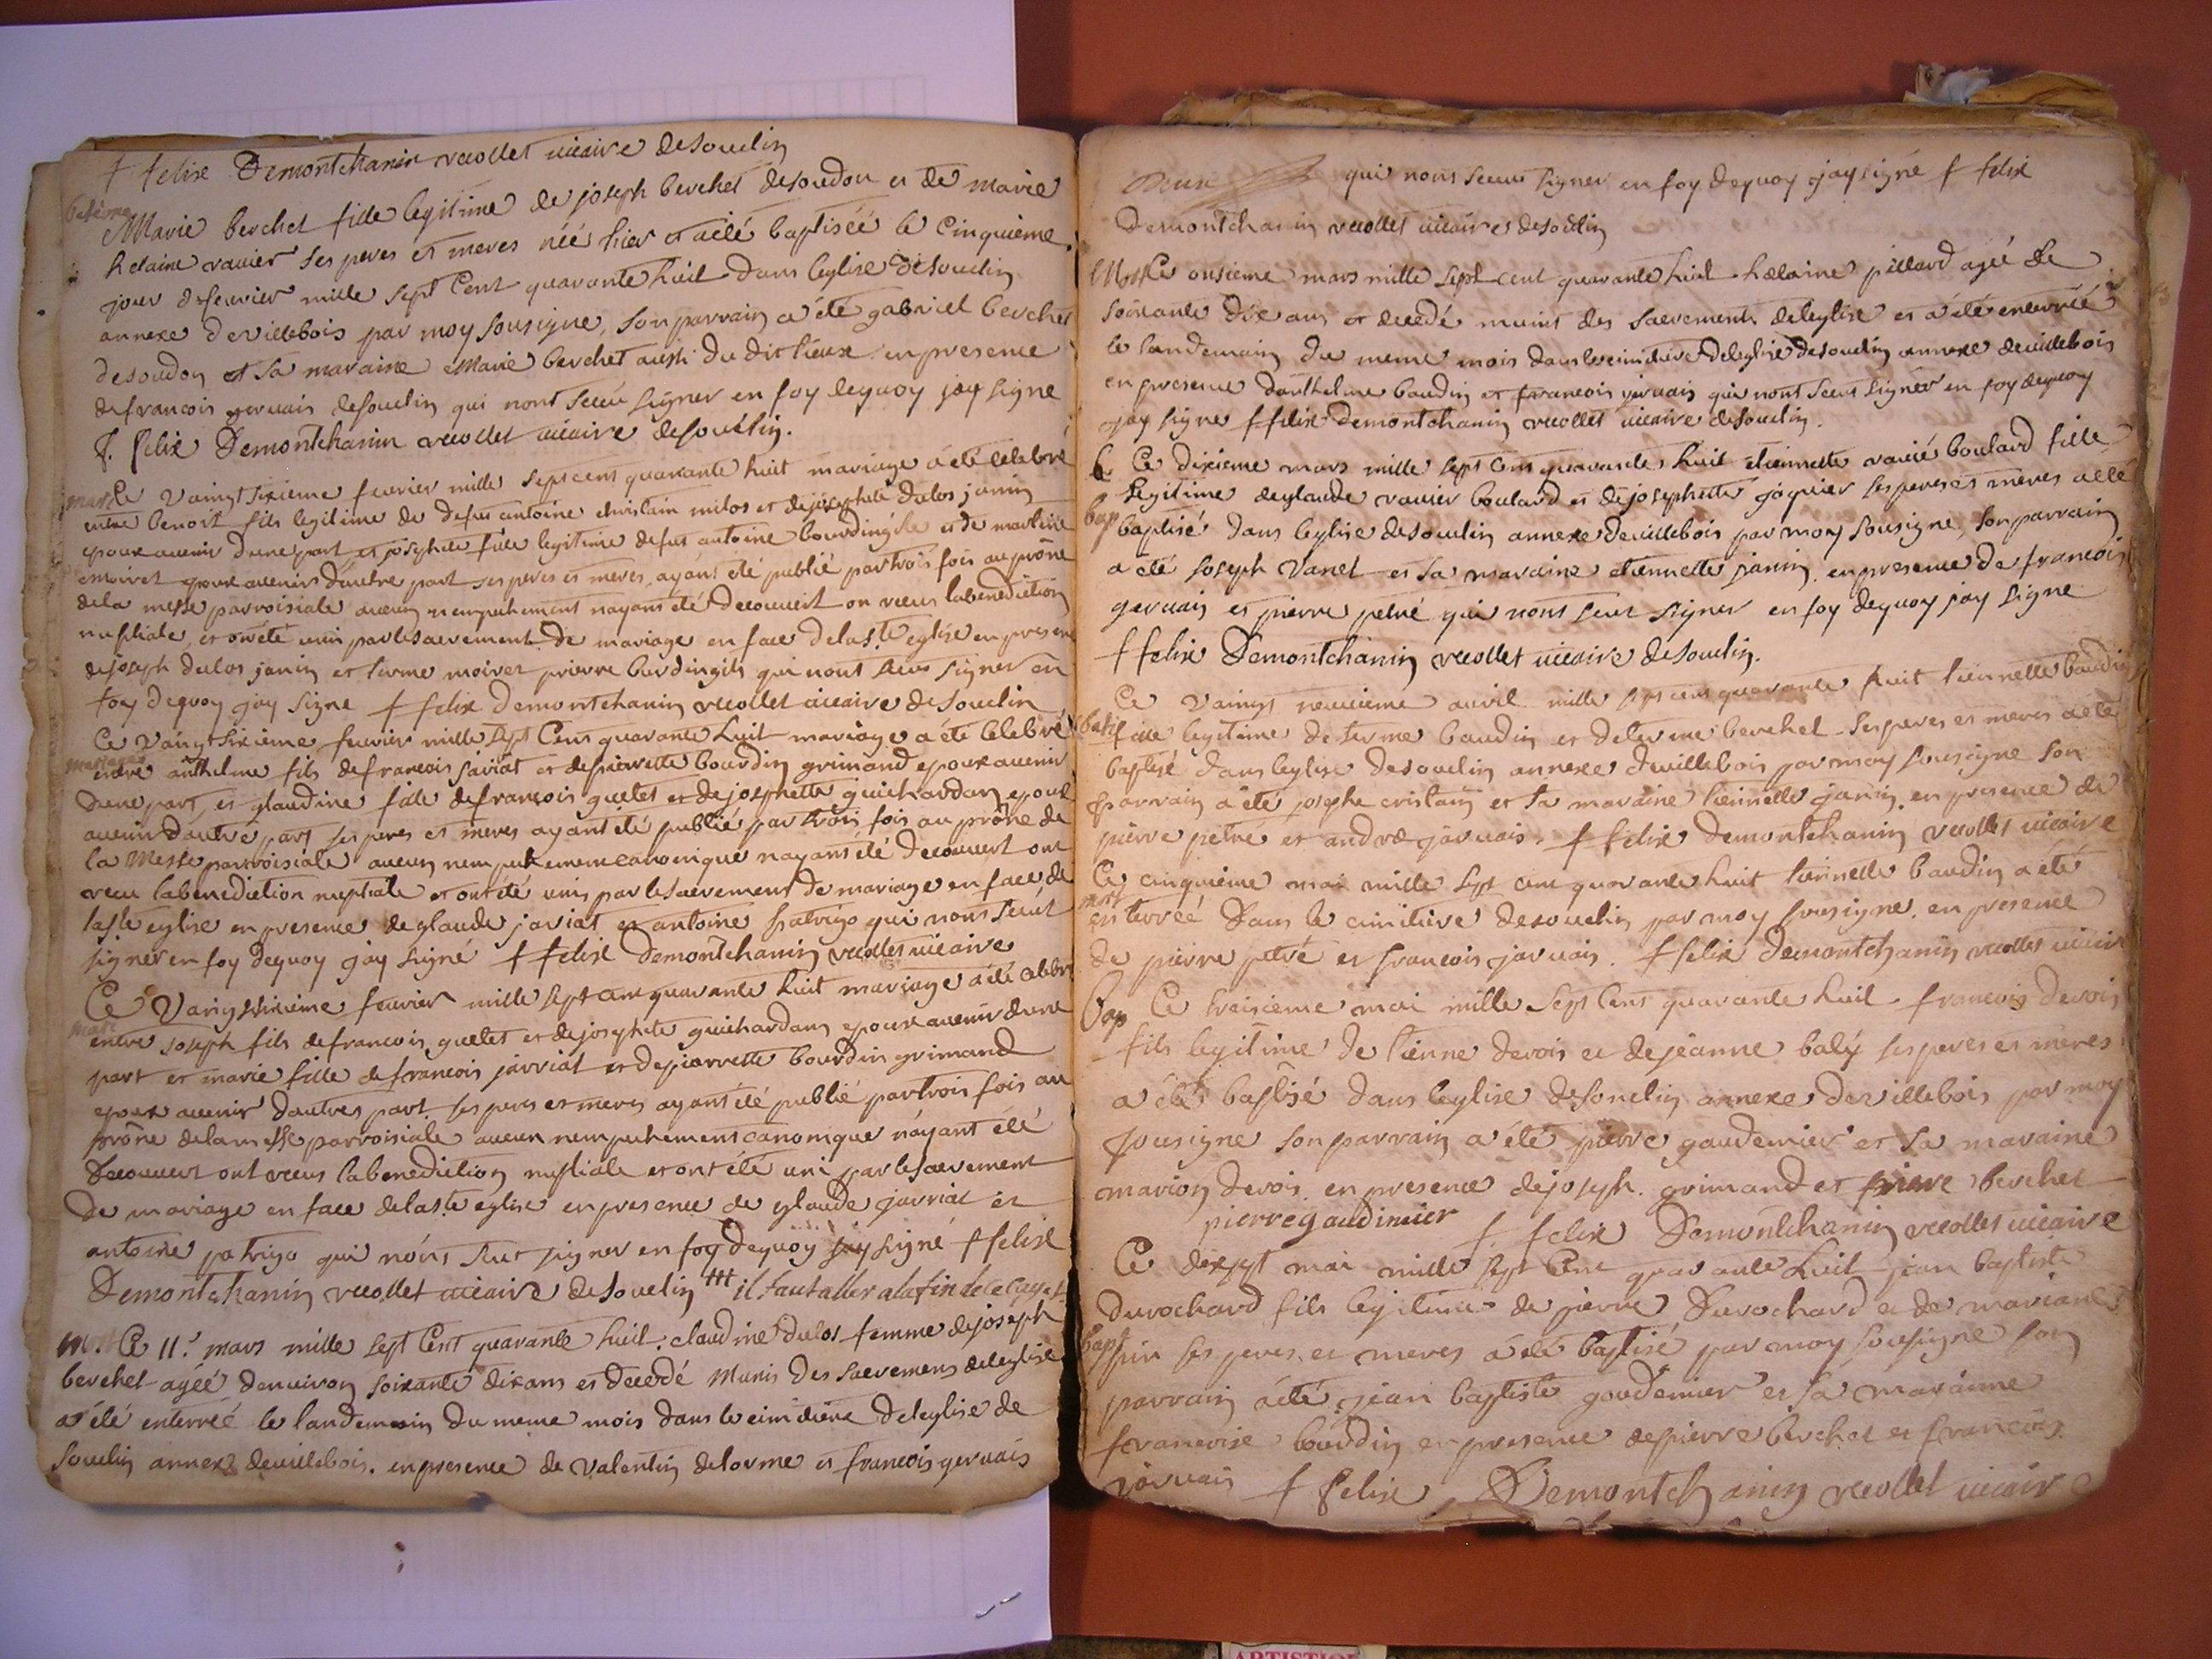 f felix Demontchanin recollet vicaire de Souclin
batême
Marie berchet fille legitime de joseph berchet desoudon et de marie
helaine ravier ses peres et meres néé hier et a été baptiséé le Cinquieme
jour defeuvier mille sept Cent quarante huit dans leglise de Souclin
annexe de villebois par moy sousigne, son parrain a été gabriel berchet
desoudon et sa maraine Marie berchet aussi du dit lieux en presence
de francois gervais de souclin qui nont seeu signer en foy dequoy jay signe
f. felix Demontchanin recollet vicaire de souclin.
mar Ce Vaingt sixieme feuvrier mille sept cens quarante huit mariage a été célébré
entre benoit fils legitime de defeu antoine christain milos et de josephete dulos janin
epoux avenir dune part et josephete fille legitime defeu antoine bourdin et de
moiret epoux avenir dautre part ses peres et meres, ayant été publié par trois fois au prône
dela messe parroisiale aucun nempechement nayant été decouvert on receu la benediction
nuptiale et on été uni par le sacrement de mariage en face de la ste eglise en presence
de joseph dulos janin et terme moiret pierre burdin qui nont seeu signer en
foy dequoy jay signe f felix demontchanin recollet vicaire de Souclin
Ce Vaingt sixieme feuvrier mille sept Cens quarante huit mariage a été célébré
mariage
entre anthelme fils de francois jariat et de pierrette bourdin grimand epoux avenir
dune part, et glaudine fille de francois guetet et de josephette guichardan epoux
avenir dautre part ses peres et meres ayant été publié par trois fois au prône de
la Messe parroisiale aucun nempechement canonique nayant été decouvert ont
receu la benediction nuptiale et ont été unis par le sacrement de mariage en face de
la ste eglise en presence de glaude jariat et antoine patrigo qui nont seeut
signer en foy dequoy jay signé f felix Demontchanin recollet vicaire
Ce Vaingt sixieme feuvrier mille sept cent quarante huit mariage a été celebré
mari
entre joseph fils de francois guetet et de josephete guichardan epoux avenir dune
part et marie fille de francois jarriat et de pierrette bourdin grimand
epoux avenir dautres part ses peres et meres ayant été publié par trois fois au
prône de la messe parroisiale aucun nempechement canonique nayant été
decouvert ont receus la benediction nuptiale et ont été uni par le sacrement
de mariage en face de la ste eglise en presence de glaude jarriat et
antoine patrigo qui nont seut signer en foy dequoy jay signé f felix
Demontchanin recollet vicaire de Souclin ttt il faut aller a la fin de ce
M. Ce 11e mars mille sept Cent quarante huit. claudine dulos femme de joseph
berchet agéé denviron soixante dix ans et decedé Munis Des sacremens deleglise
a été enterréé le landemain Du meme mois dans le cimitiere deleglise de
souclin annexe devillebois. en presence de Valentin delorme et francois gervais
qui nont seeu signer en foy dequoy jay signé f felix
Demontchanin recollet vicaire de Souclin
Mort Ce onsieme mars mille sept cent quarante huit helaine pillard agéé de
soixante dix ans et decedé munis des sacrements deleglise et a été enterréé
le landemain du meme mois dans le cimitiere de leglise de souclin annexe de villebois
en presence danthelme baudin et francois gervais qui nont seeus signer en foy dequoy
jay signe f felix demontchanin recollet vicaire de Souclin.
b Ce dixieme mars mille sept Cens quarante huit etiennette ravié boulard fille
legitime de glaude ravier boulard et de josephette jaquier ses peres et meres a été
bap baptisé dans leglise de Souclin annexe de villebois par moy sousigne, son parrain
a été joseph Vanel et sa maraine etiennette janin, en presence de francois
gervais et pierre petré qui nont seut signer en foy dequoy jay signe
f felix Demontchanin recollet vicaire de Souclin.
Ce Vaingt neuvieme avril mille sept cens quarante huit tiennette baudin
bati fille legitime de terme baudin et de terme berchet ses peres et meres a été
baptisé dans leglise de souclin annexe de villebois par moy sousigne son
parrain a été josephe cristain et sa maraine tiennette janin. en presence de
pierre petré et andre jarvais. f felix demontchanin recollet vicaire
Ce cinquieme mai mille sept cent quarante huit tiennette baudin a été
mort
enterréé Dans le cimitiere de souclin par moy sousigne. en presence
de pierre petré et francois jarvais. f felix demontchanin recollet vicaire
bap Ce traisieme mai mille sept Cens quarante huit francois devois
fils legitime de tienne devois et de jeanne baly ses peres et meres
a été baptisé dans leglise de souclin annexe de villebois par moy
sousigne son parrain a été pierre gaudemier et sa maraine
marion devois en presence de joseph grimand et pierre berchet
pierre gaudimier f felix Demontchanin recollet vicaire
Ce dixsept mai mille sept Cent quarante huit jean baptiste
durochard fils legitime de pierre Durochard et de mariane
bapt pin ses peres et meres a été baptisé par moy sousigne son
parrain a été jean baptiste goudemier et sa maraine
francoise bourdin en presence de pierre berchet et francois
jarvais f felix Demontchanin recollet vicaire